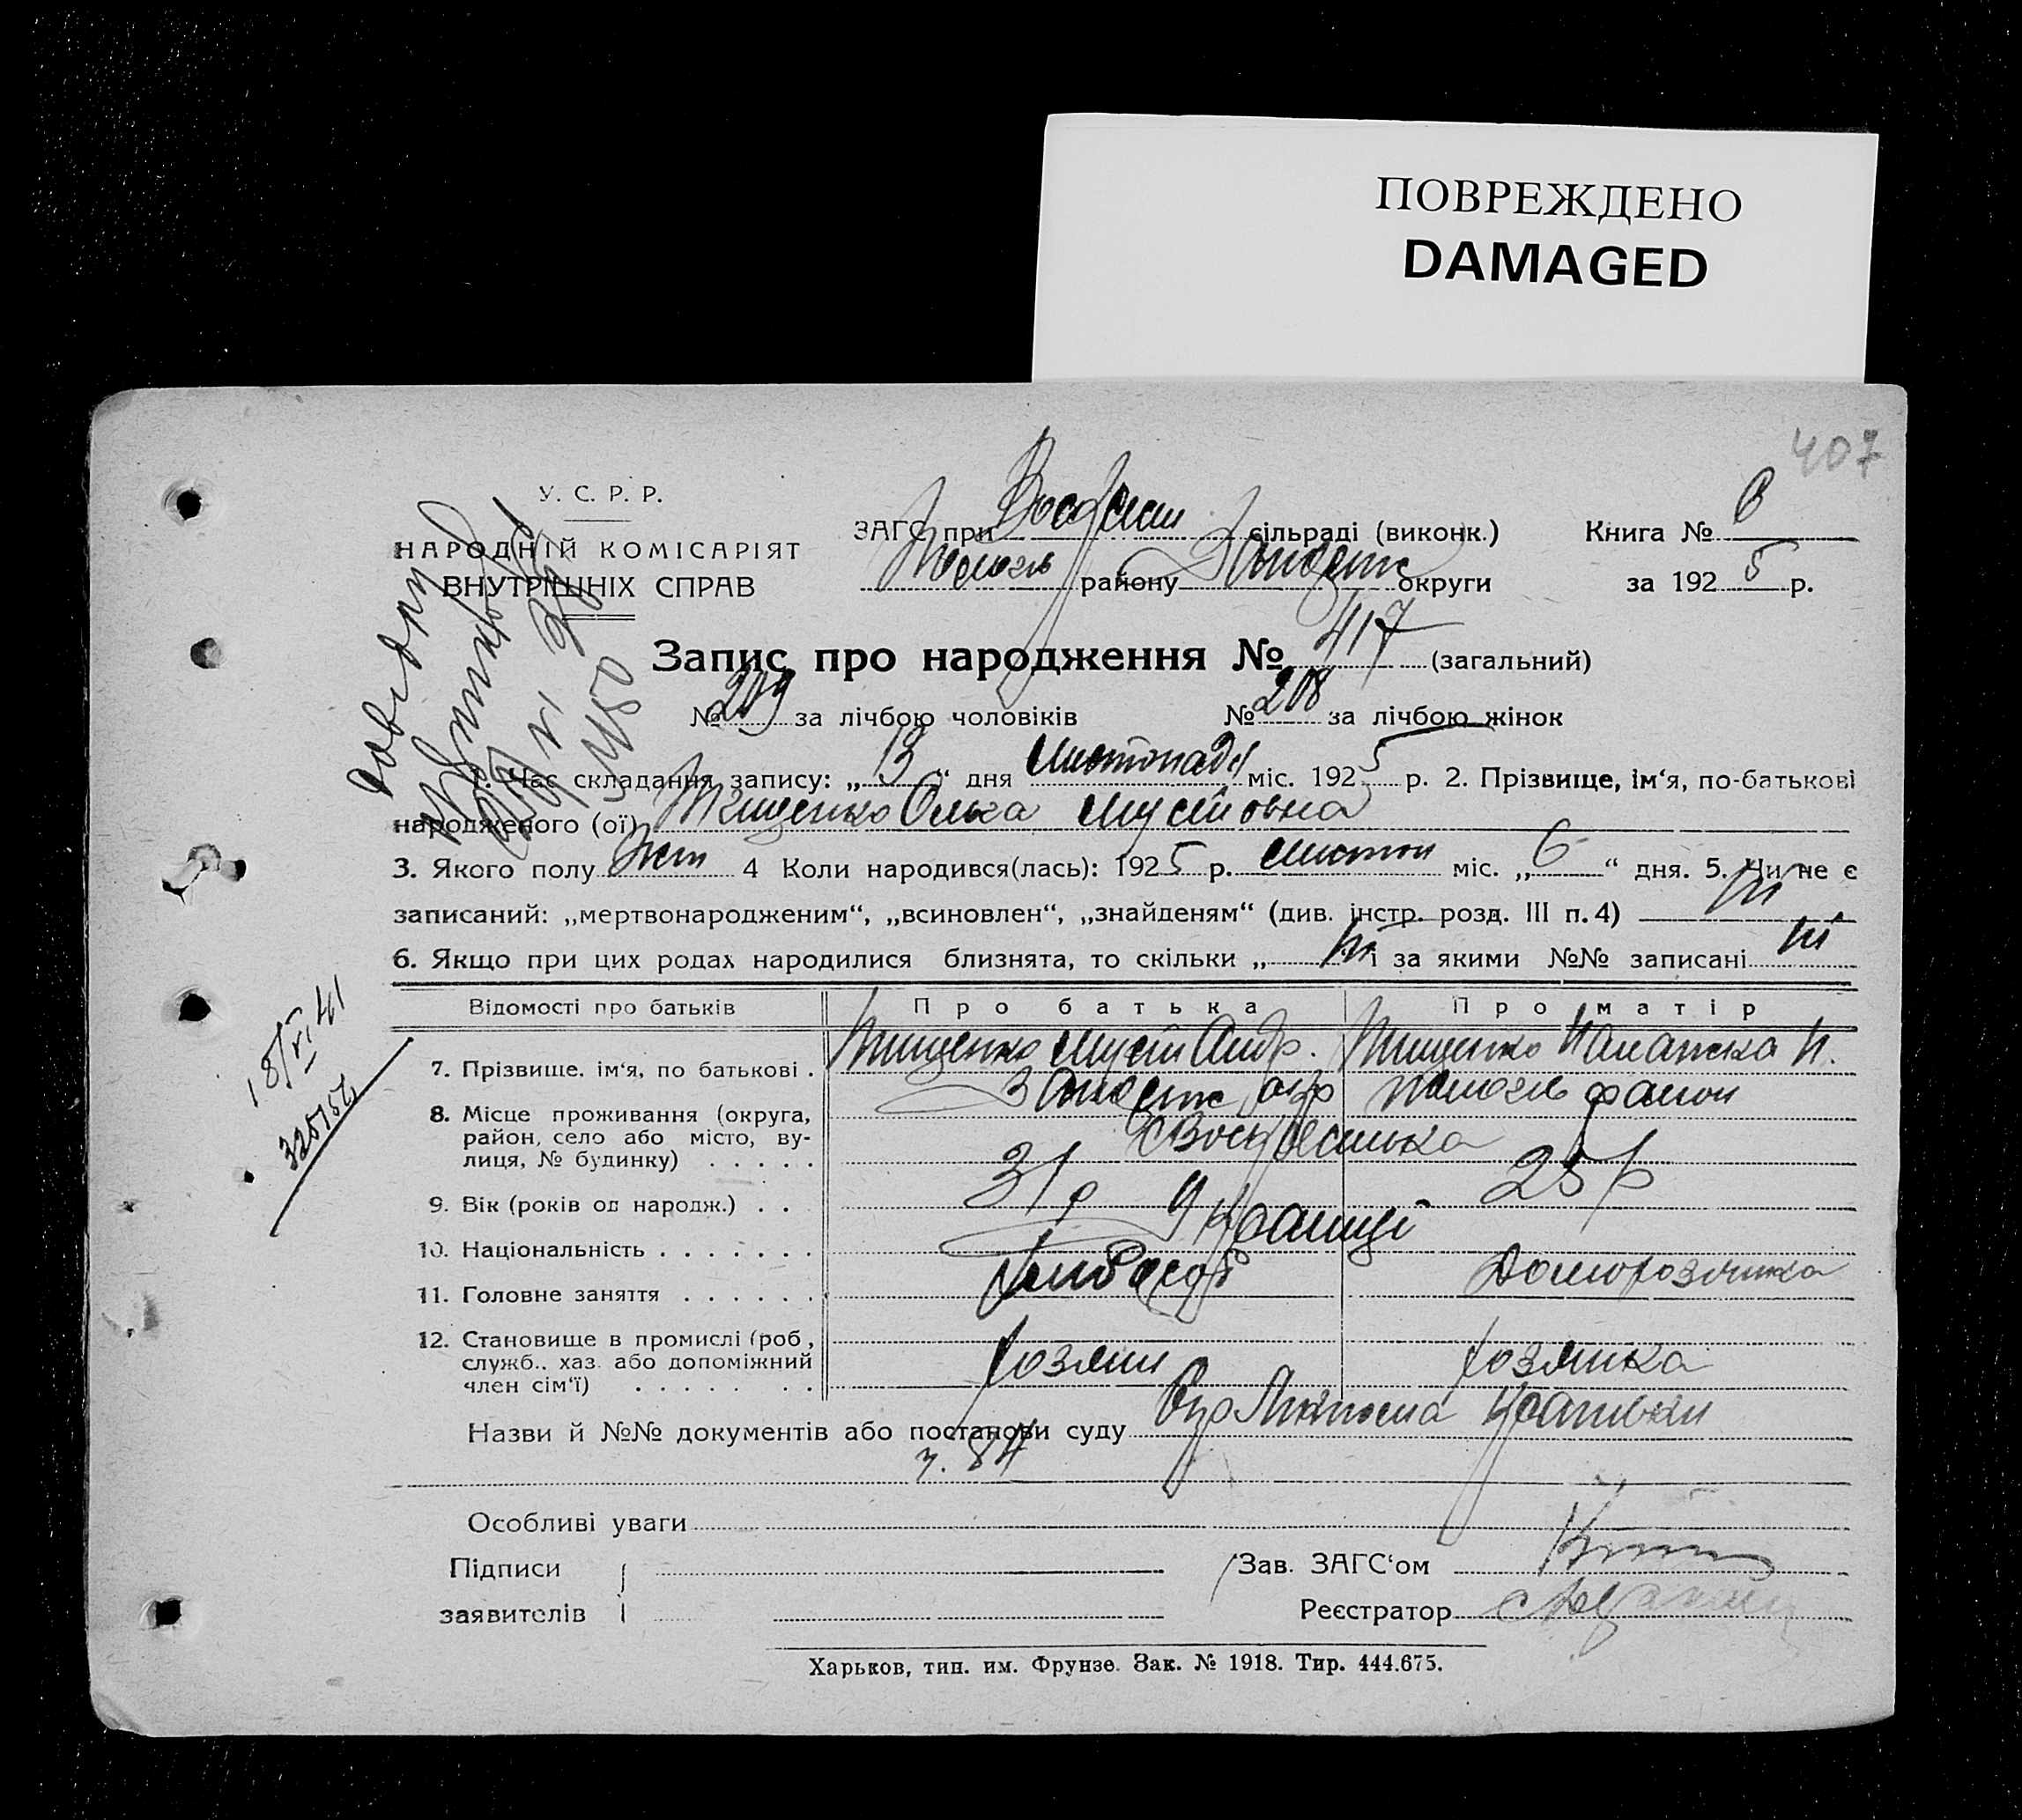 ПОВРЕЖДЕНО
DAMAGED
407
У. С. Р. Р.
НАРОДНІЙ КОМІСАРІЯТ
ВНУТРІШНІХ СПРАВ
ЗАГС при сільраді (виконк.) Книга № 6
району округи за 1925 р.
Запис про народження № 417 (загальний)
№ 209 за лічбою чоловіків № 208 за лічбою жінок
1. Час складання запису: „13“ дня Листопада міс. 1925 р. 2. Прізвище, ім‘я, по-батькові
народженого (ої) Тищенко Ольга Мусіївна
3. Якого полу Жен 4 Коли народився(лась): 1925 р. Листоп міс. „6“ дня. 5. Чи не є
записаний: „мертвонародженим“, „всиновлен“, „знайденям“ (див. інстр. розд. III п. 4) Ні
6. Якщо при цих родах народилися близнята, то скільки „ Ні і за якими №№ записані Ні
18/VI 41
Відомості про батьків Про батька Про матір
7. Прізвище. ім‘я, по батькові . Тищенко Мусій Андр. Тищенко Палажка
8. Місце проживання (округа, район, село або місто, вулиця, № будинку) . . . . . Запоріж окр район
9. Вік (років од народж.) . . 31 р 25 р
10. Національність . . . . . . . Українці
11. Головне заняття . . . . . . Хлібороб Домохозяйка
12. Становище в промислі (роб., служб., хаз. або допоміжний член сім‘ї) . . . . . . . Хозяин Хозяйка
Назви й №№ документів або постанови суду
ч. 84
Особливі уваги
Підписи
заявителів
Зав. ЗАГС‘ом
Реєстратор
Харьков, тип. им. Фрунзе. Зак. № 1918. Тир. 444.675.